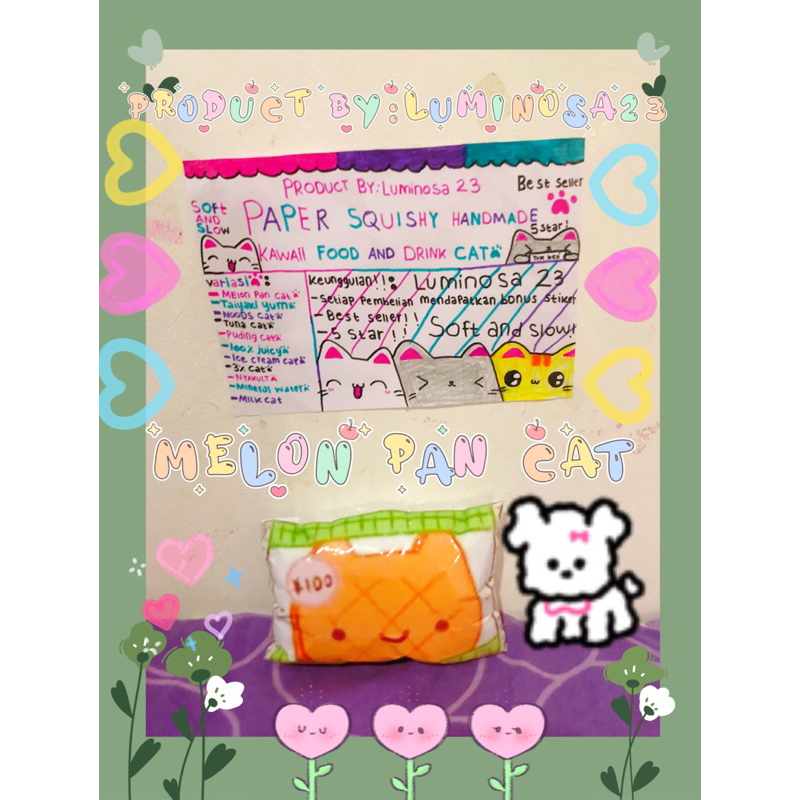 PRODUCT BY:LUMINOSA23
PRODUCT BY:Luminosa 23
Best seller
SOFt AND SLOW
PAPER SQUISHY HANDMADE
5 Star!
KAWAII FOOD AND DRINK CAT
variasi:
-MELon Pan cat
-Taiyaki yum
-NOODS cat
-Tuna cat
-Puding cat
-100% juicy
-Ice cream cat
-3% cat
-NYAKULT
-Mineral water
-MILK cat
Keunggulan!!:
Luminosa 23
-Setiap Pembelian mendapatkan bonus Stiker
-Best seller!!
-5 Star!!!
Soft and slow!
MELON PAN CAT
¥100